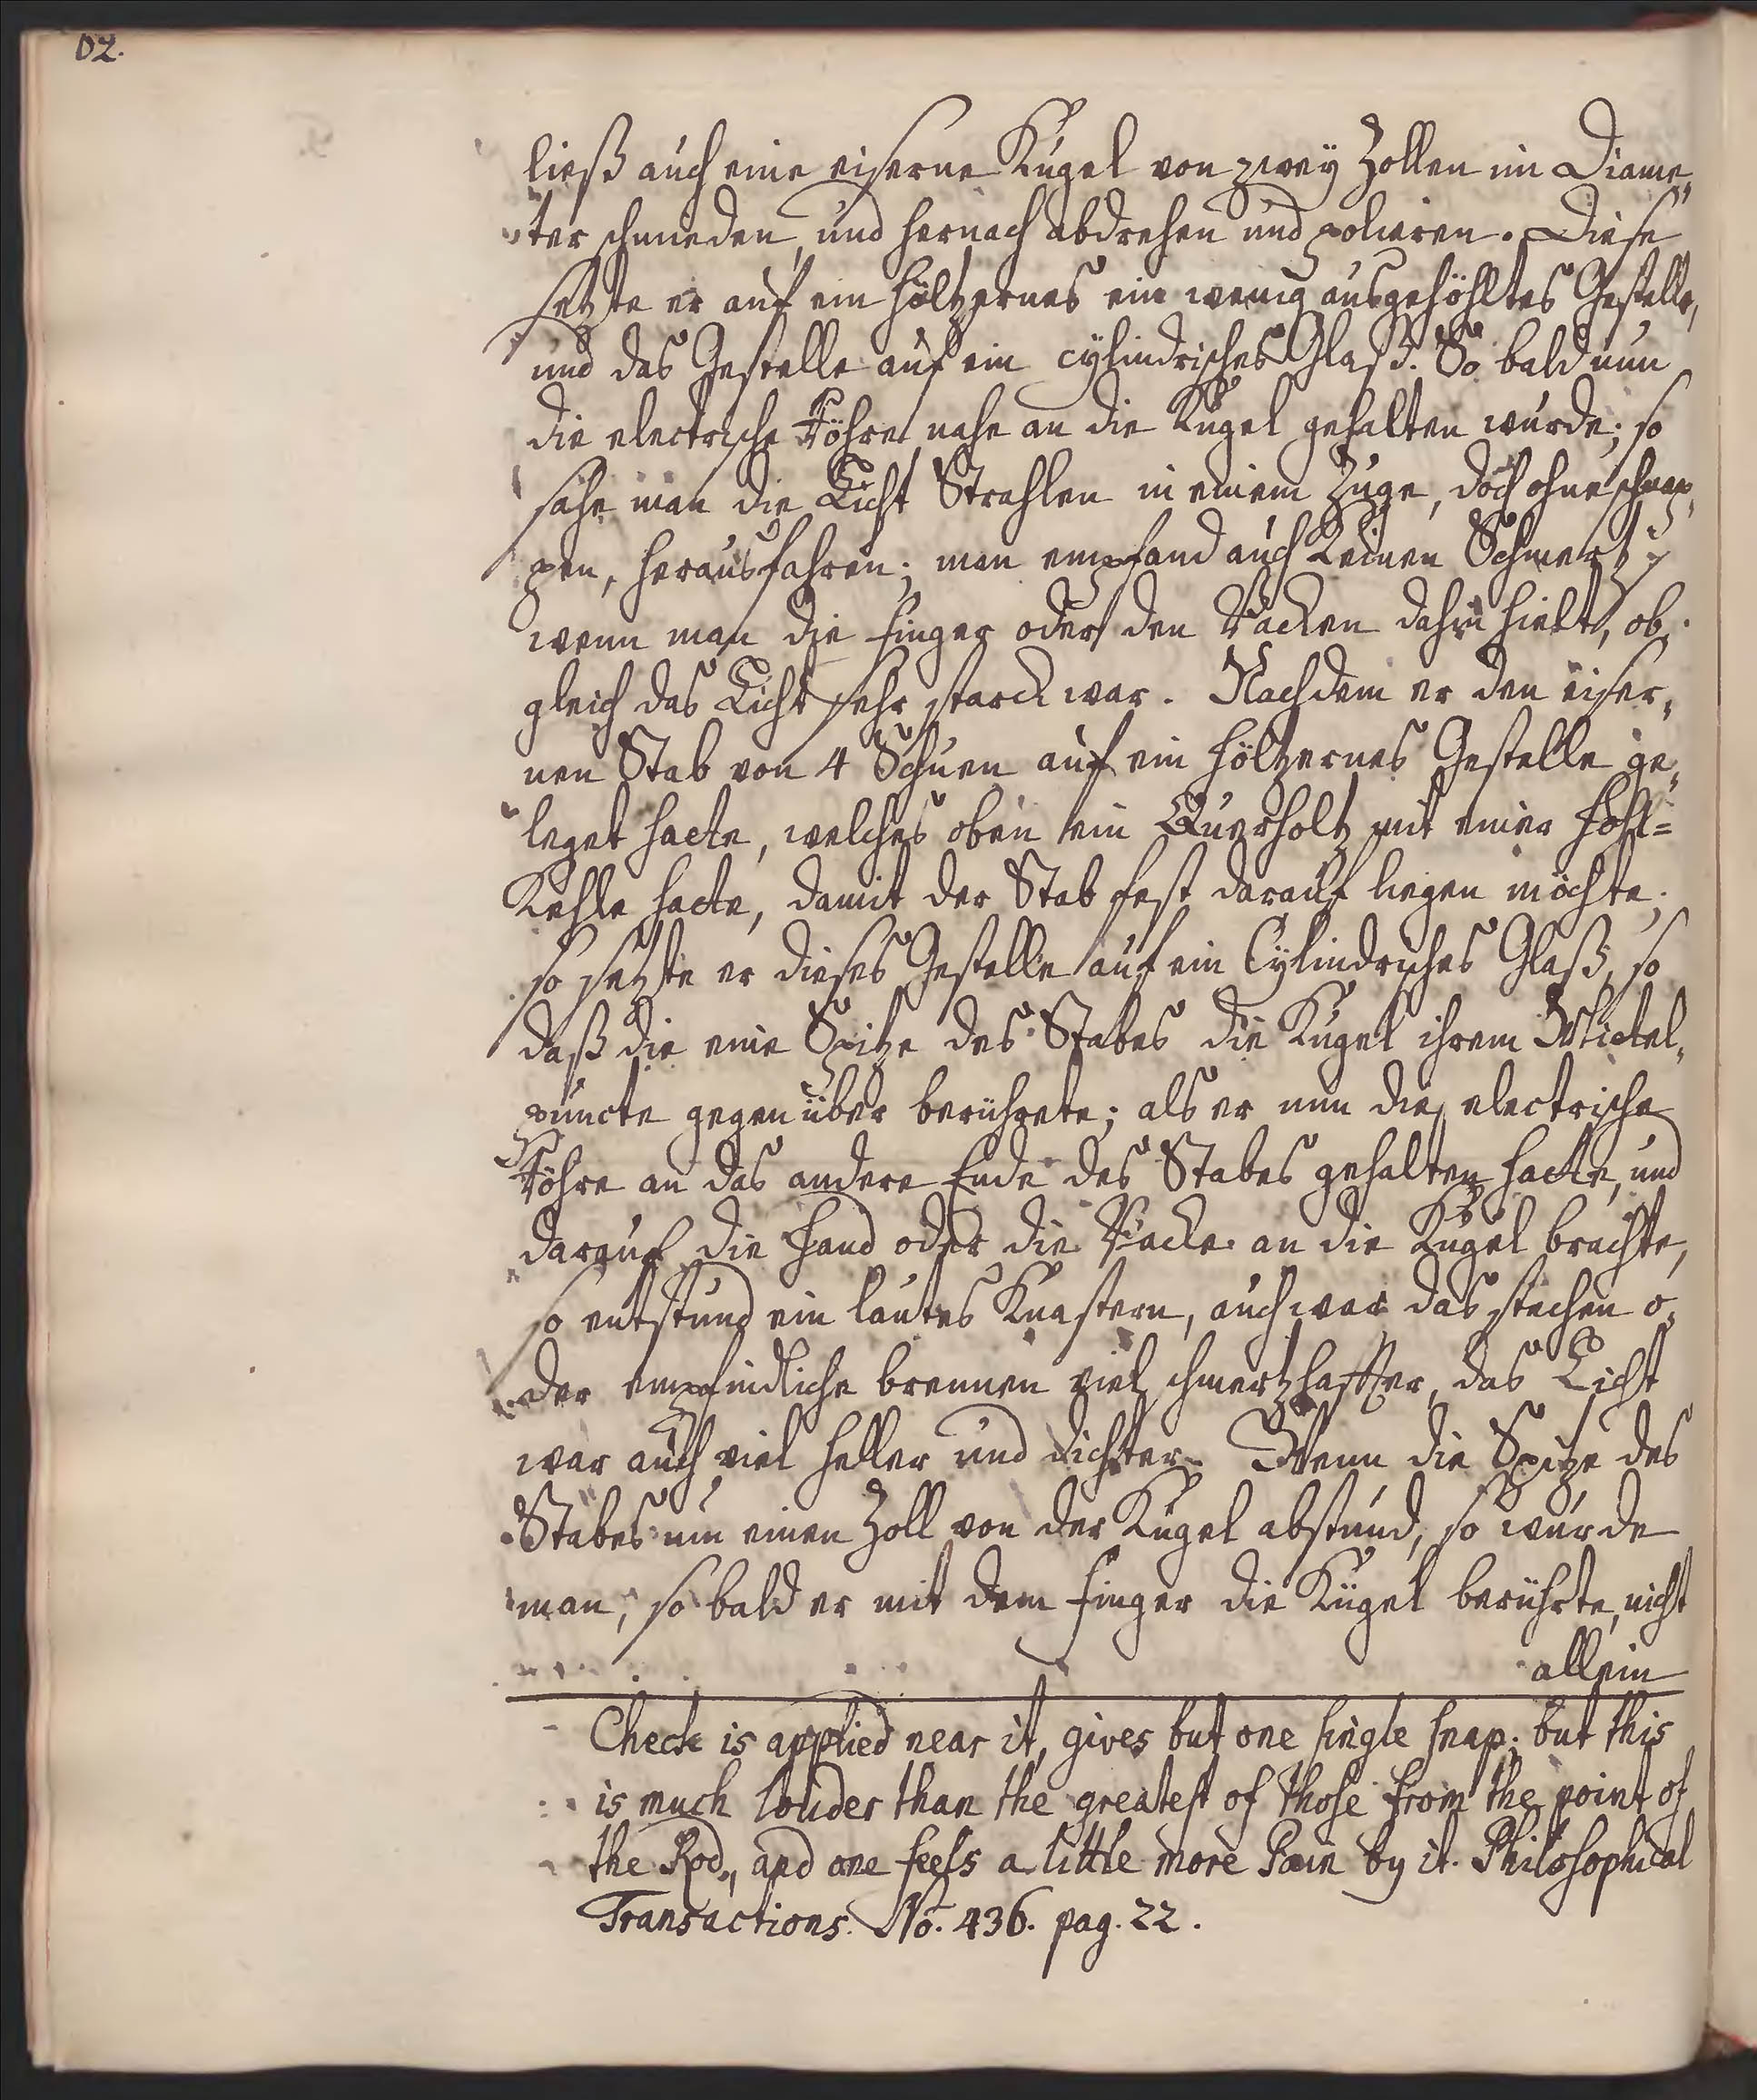 02.
ließ auch eine eiserne Kugel von zwey Zollen im Diame„
„ter schmieden, und hernach abdrehen und polieren. Diese
setzte er auf ein höltzernes ein wenig ausgehöhltes Gestelle,
und das Gestelle auf ein cylindrisches Glaß. So bald nun
die electrische Röhre nahe an die Kugel gehalten wurde; so
sahe man die Licht Strahlen in einem Zuge, doch ohne schnap„
pen, herausfahren; man empfand auch keinen Schmertz
wenn man die Finger oder den Backen dahin hielt, ob„
gleich das Licht sehr starck war. Nachdem er den eiser„
nen Stab von 4 Schuen auf ein höltzernes Gestelle ge„
leget hatte, welches oben ein Querholtz mit einer Hohl=
Kehle hatte, damit der Stab fest darauf liegen möchte;
so setzte er dieses Gestelle auf ein Cylindrisches Glaß, so
daß die eine Spitze des Stabes die Kugel ihrem Mittel„
puncte gegen über berührete; als er nun die electrische
Röhre an das andere Ende des Stabes gehalten hatte, und
darauf die Hand oder die Backe an die Kugel brachte,
so entstund ein lautes Knastern, auch war das stechen o„
der empfindliche brennen viel schmertzhaffter, das Licht
war auch viel heller und dichter. Wenn die Spitze des
Stabes um einen Zoll von der Kugel abstund, so wurde
man, so bald er mit dem Finger die Kugel berührte, nicht
allein
Check is applied near it, gives but one single snap; but this
is much louder than the greatest of those from the point of
the Rod, and one feels a little more Pain by it. Philosophical
Transactions. No. 436. pag. 22.